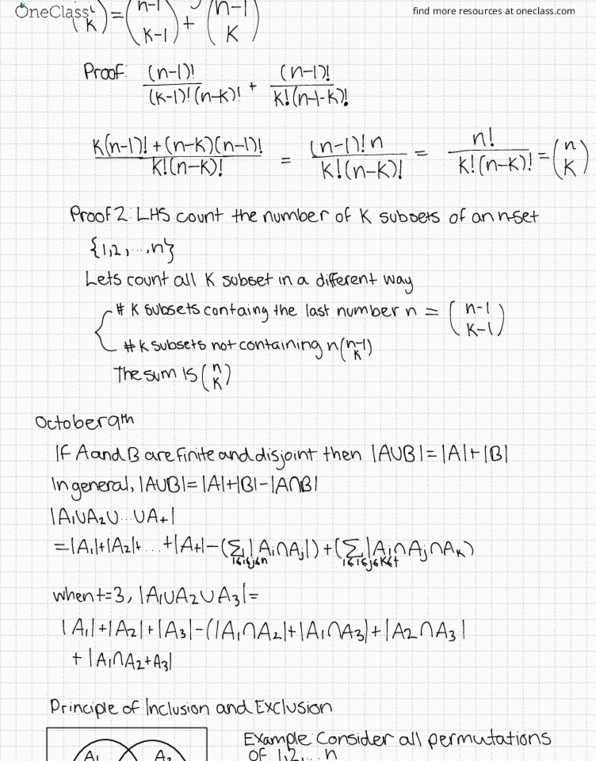 OneClass
find more resources at oneclass.com
(K) = (n-1 K-1) + (n-1 K)
Proof: (n-1)!/(K-1)!(n-K)! + (n-1)!/K!(n-1-K)!
K(n-1)! + (n-K)(n-1)!/K!(n-K)! = (n-1)!n/K!(n-K)! = n!/K!(n-K)! = (n K)
Proof 2: LHS count the number of K subsets of an n-set
{1,2,...,n}
Lets count all K subset in a different way
# K subsets containg the last number n = (n-1 K-1)
# K subsets not containing n (n-1 K)
The sum is (n K)
October 9th
If A and B are finite and disjoint then |AUB| = |A|+|B|
In general, |AUB| = |A|+|B|-|A∩B|
|A1UA2U...UAt|
=|A1|+|A2|+...+|At|-(Σ 1≤i≤j≤n |Ai∩Aj|)+(Σ 1≤i≤j≤K≤t |Ai∩Aj∩AK)
when t=3, |A1UA2UA3| =
|A1|+|A2|+|A3|-(|A1∩A2|+|A1∩A3|+|A2∩A3|
+|A1∩A2+A3|
Principle of Inclusion and Exclusion
A1 A2
Example: Consider all permutations
of 1,2,...n